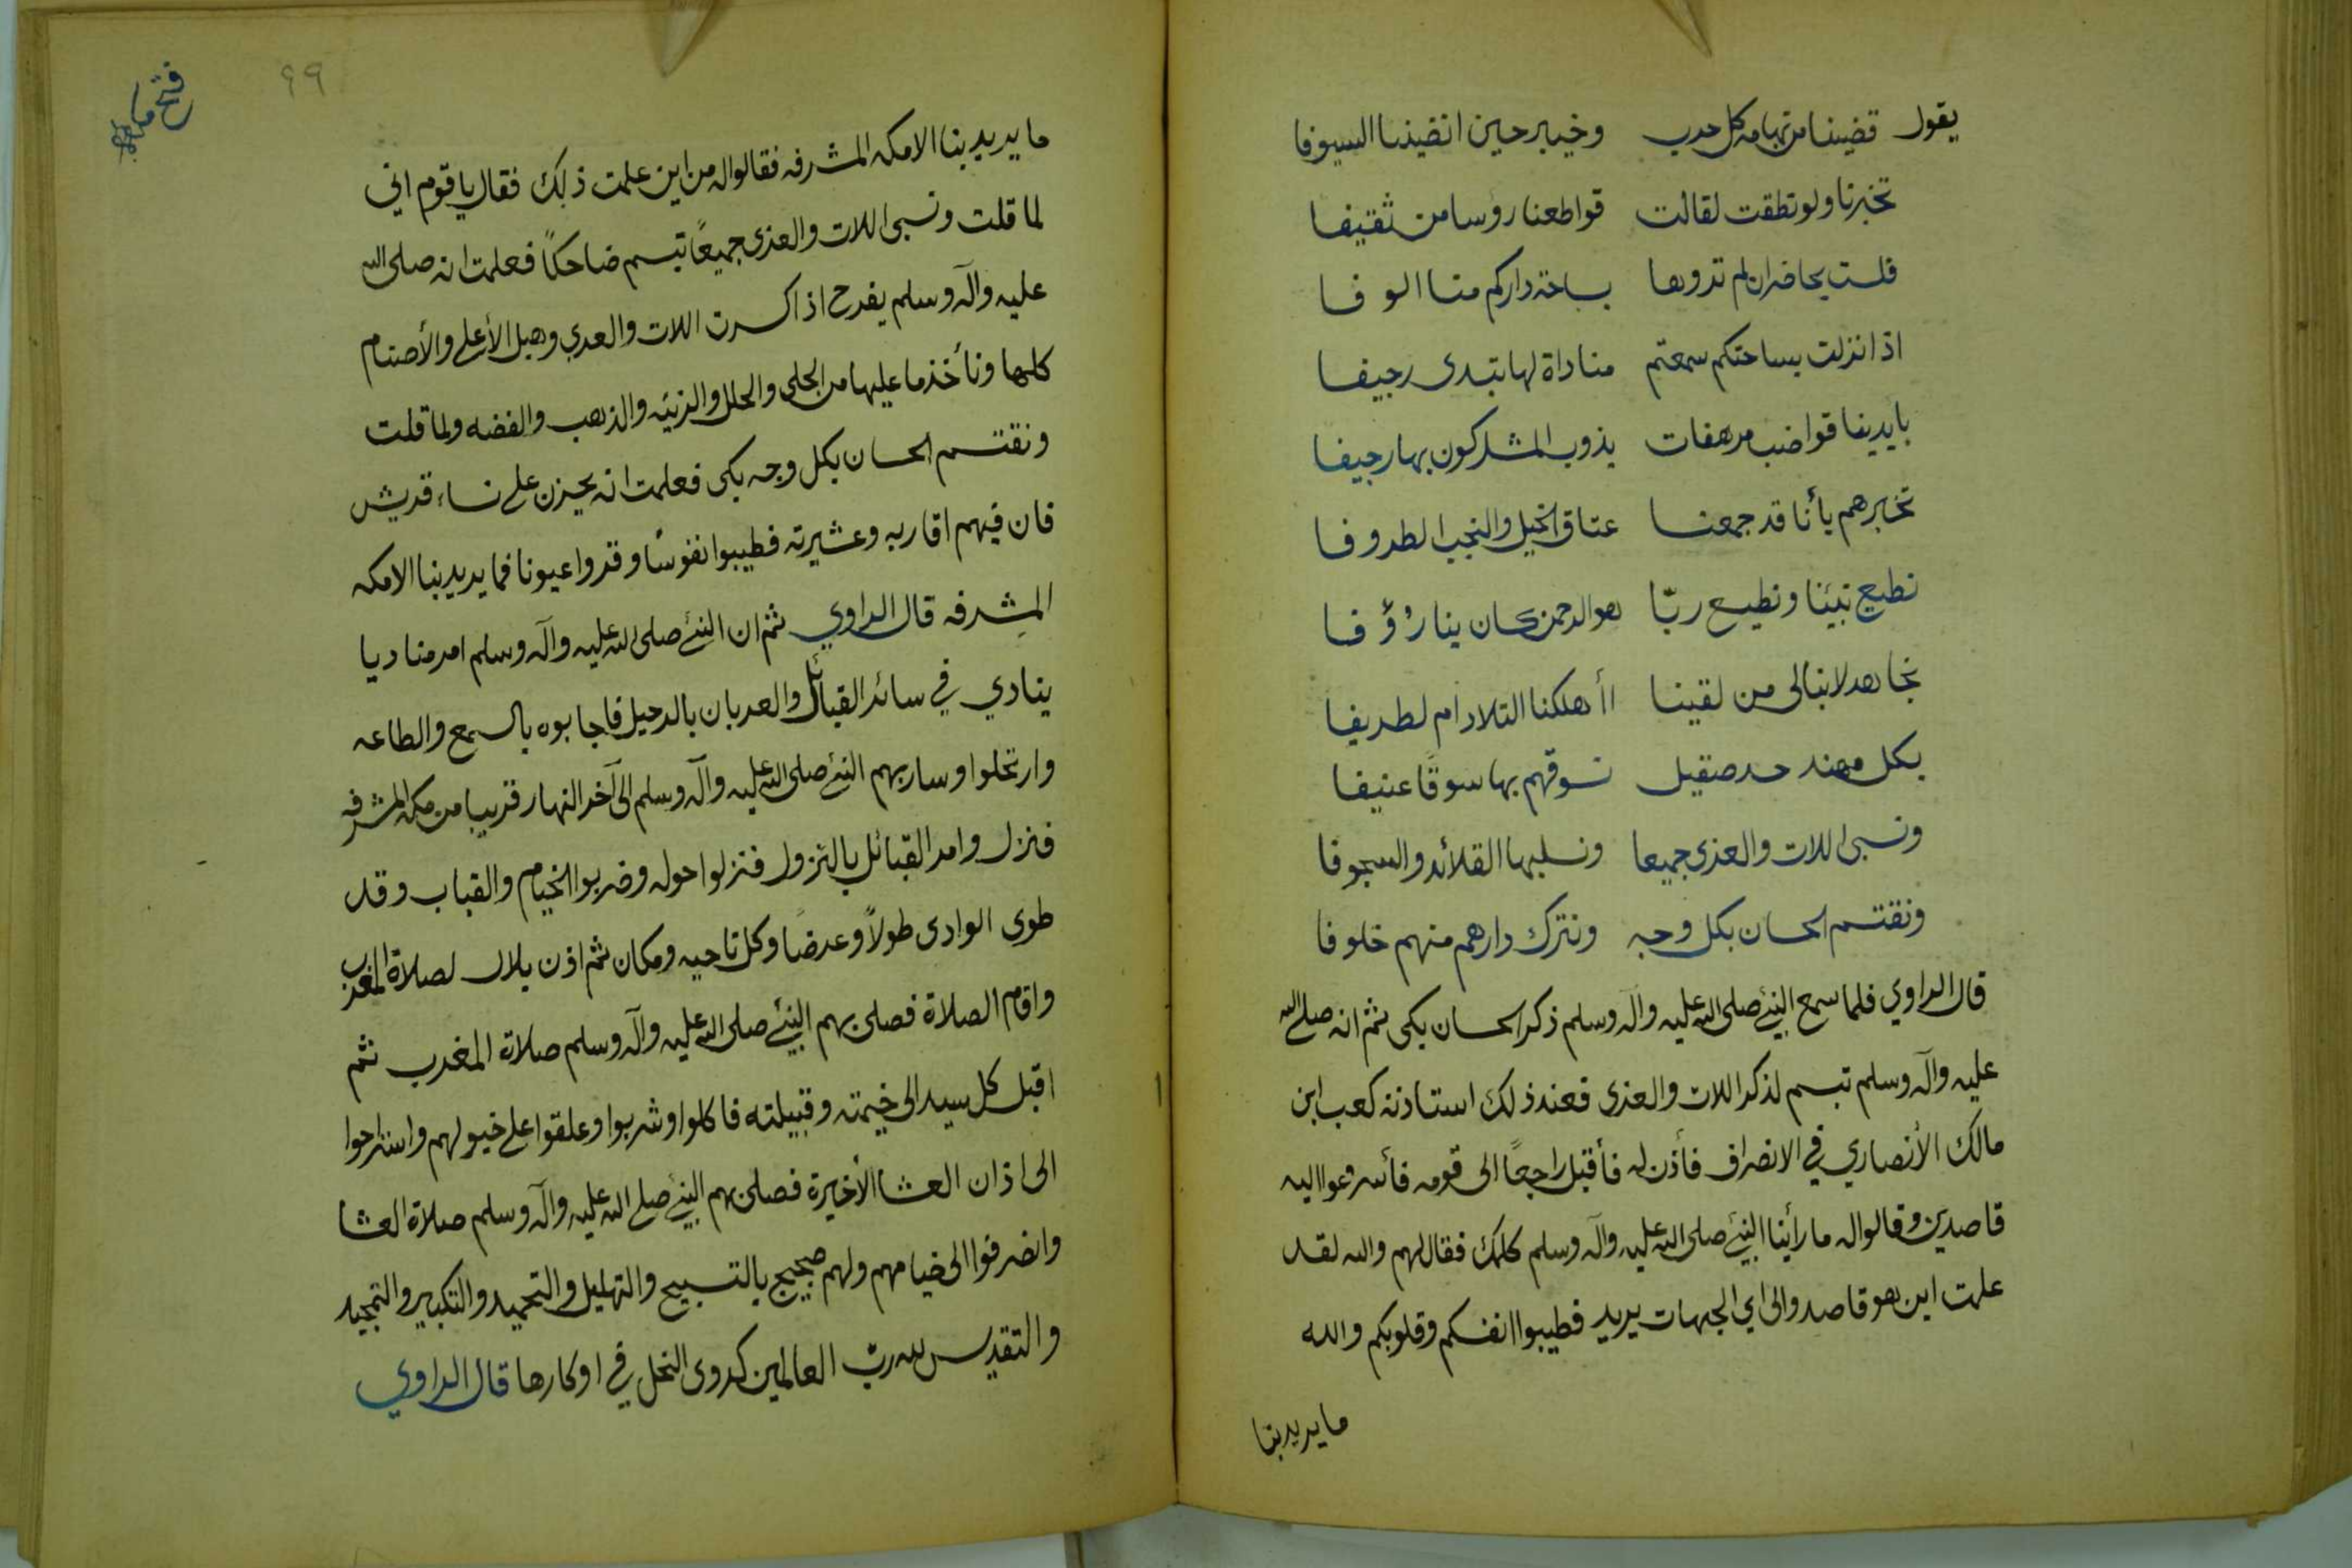 يقول قضينا من تهامه كل حرب وخيبر حين انضينا السيوفا
تخبرنا ولو نطقت لقالت قواطعنا رؤسا من ثقيفا
فلست بحاضر ان لم تروها بساحة داركم منا الوفا
اذا نزلت بساحتكم سمعتم مناداة لها تبدى رجيفا
بايدينا قواضب مرهفات يذوب المشركون بها رجيفا
تخبرهم بأنا قد جمعنا عتاق الخيل والنجب الطروفا
نطيع نبينا ونطيع ربّا هو الرحمن كان بنا رؤفا
نجاهد لا نبالى من لقينا اأهلكنا التلاد ام لطريفا
بكل مهند حد صقيل نسوقهم بها سوقًا عنيفا
ونسبى اللات والعزى جميعا ونسلبها القلائد والسجوفا
ونقتسم الحسان بكل وجه ونترك دارهم منهم خلوفا
قال الراوي فلما سمع النبئ صلى الله عليه وآله وسلم ذكر الحسان بكى ثم انه صلى الله
عليه وآله وسلم تبسم لذكر اللات والعزى فعند ذلك استاذنه كعب ابن
مالك الأنصاري في الانصراف فأذن له فأقبل راجعًا الى قومه فأسروعوا اليه
قاصدين وقالوا له ما رأينا النبئ صلى الله عليه وآله وسلم كلمك فقال لهم والله لقد
علمت اين هو قاصد والى اي الجهات يريد فطيبوا انفسكم وقلوبكم والله
ما يريد بنا
فتح مكه
٦٩
ما يريد بنا الا مكه المشرفه فقالوا له من اين علمت ذلك فقال يا قوم انى
لما قلت ونسبى اللات والعزى جميعًا تبسم ضاحكًا فعلمت انه صلى الله
عليه وآله وسلم يفرح اذا كسرت اللات والعزى وهبل الأعلى والأصنام
كلها ونأخذ ما عليها من الحلى والحلل والزينه والذهب والفضه ولما قلت
ونقتسم الحسان بكل وجه بكى فعلمت انه يحزن على نساء قريش
فان فيهم اقاربه وعشيرته فطيبوا نفوسًا وقروا عيونا فما يريد بنا الا مكه
المشرفه قال الراوي ثم ان النبئ صلى الله عليه وآله وسلم امر مناديا
ينادي في سائر القبائل والعربان بالرحيل فاجابوه بالسمع والطاعه
وارتحلوا وسار بهم النبئ صلى الله عليه وآله وسلم الى آخر النهار قريبا من مكه المشرفه
فنزل وامر القبائل بالنزول فنزلوا حوله وضربوا الخيام والقباب وقد
طوى الوادى طولاً وعرضًا وكل ناحيه ومكان ثم اذن بلال لصلاة المغرب
واقام الصلاة فصلى بهم النبئ صلى الله عليه وآله وسلم صلاة المغرب ثم
اقبل كل سيد الى خيمته وقبيلته فاكلوا وشربوا وعلقوا على خيولهم واستراحوا
الى اذان العشا الأخيرة فصلى بهم النبئ صلى الله عليه وآله وسلم صلاة العشا
وانضرفوا الى خيامهم ولهم ضجيج بالتسبيح والتهليل والتحميد والتكبير والتمجيد
والتقديس لله ربّ العالمين كدوى النحل في اوكارها قال الراوي